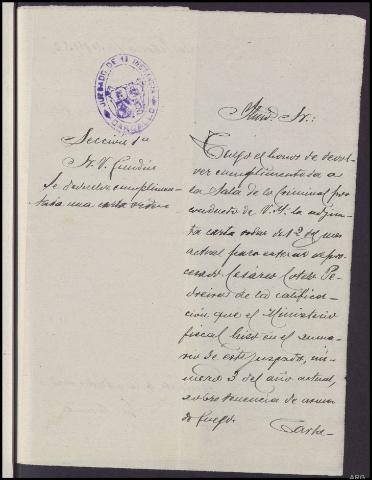 JUZGADO DE 1ª INSTANCIA
CARBALLO
Sección 1a
Se devuelve cumplimen-
tada una carta orden
Iltmo. Sr:
Tengo el honor de devol-
ver cumplimentada a
la Sala de lo Criminal por
conducto de V.I. la adjun-
ta carta orden del 2 del mes
actual para enterar al pro-
cesado Cesáreo Cotelo Pe-
dreira de la califica-
ción que el Ministerio
fiscal hizo en el suma-
rio de este juzgado, nú-
mero 3 del año actual,
sobre tenencia de armas
de fuego.
Carba-
ARG